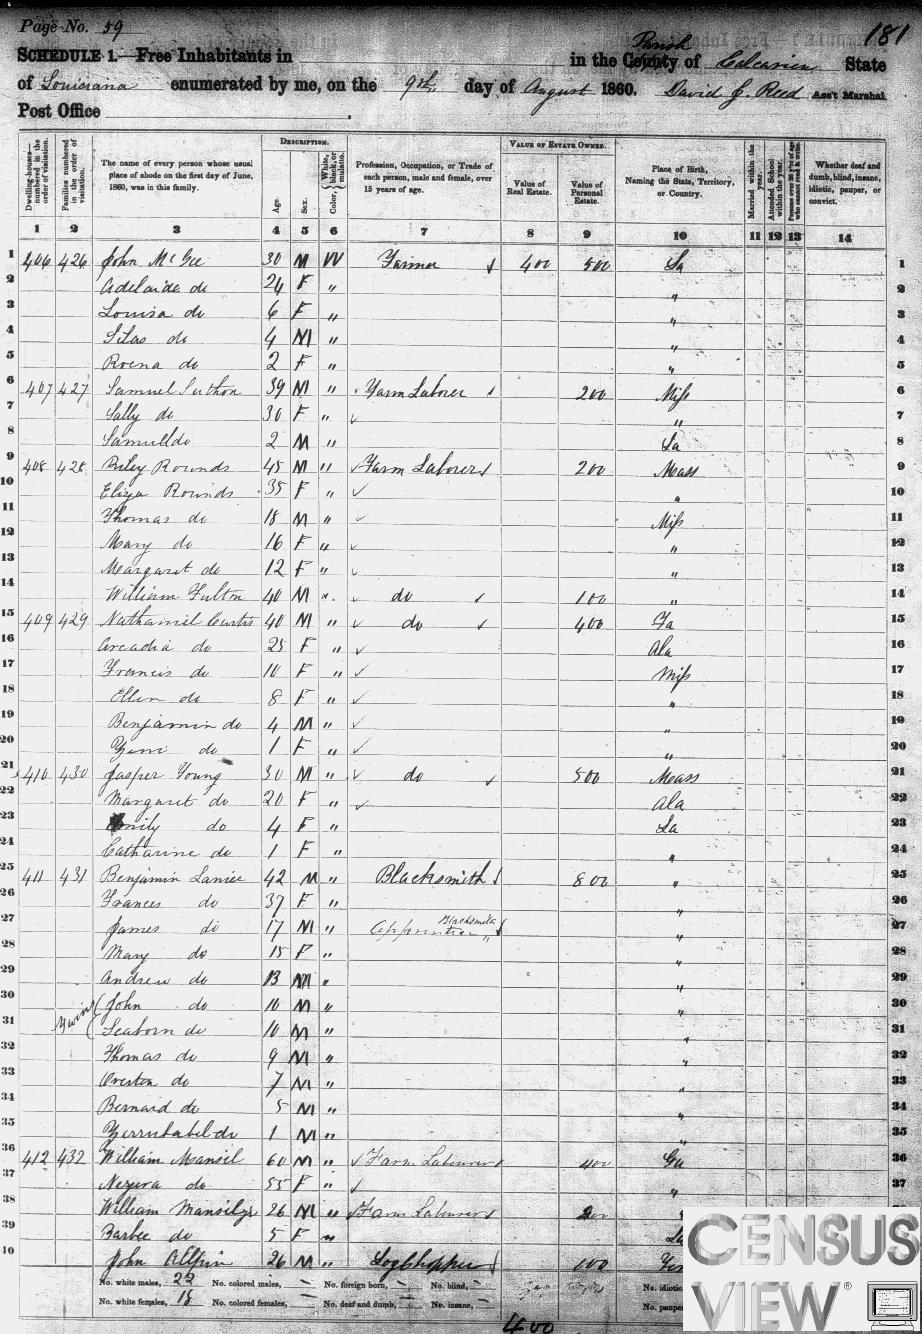 Page No. 59 181
SCHEDULE 1.—Free Inhabitants in in the County of Parish Calcasieu State
of Louisiana enumerated by me, on the 9th day of August 1860. David J. Reed Ass't Marshal
Post Office .
Dwelling-houses—numbered in the order of visitation. Families numbered in the order of visitation. The name of every person whose usual place of abode on the first day of June, 1860, was in this family. DESCRIPTION. Age. Sex. Color, White, black, or mulatto. Profession, Occupation, or Trade of each person, male and female, over 15 years of age. VALUE OF ESTATE OWNED. Value of Real Estate. Value of Personal Estate. Place of Birth, Naming the State, Territory, or Country. Married within the year. Attended School within the year. Persons over 20 y'rs of age who cannot read & write. Whether deaf and dumb, blind, insane, idiotic, pauper, or convict.
1 2 3 4 5 6 7 8 9 10 11 12 13 14
1 406 426 John McGee 30 M W Farmer 400 500 La 1
2 Adelaide do 24 F " " 2
3 Louisa do 6 F " " 3
4 Silas do 4 M " " 4
5 Roena do 2 F " " 5
6 407 427 Samuel Suthon 39 M " Farm Laborer 200 Miss 6
7 Sally do 30 F " " 7
8 Samuel do 2 M " La 8
9 408 428 Riley Rounds 45 M " Farm Laborer 200 Mass 9
10 Eliza Rounds 35 F " " 10
11 Thomas do 18 M " Miss 11
12 Mary do 16 F " " 12
13 Margaret do 12 F " " 13
14 William Fulton 40 M " do 100 " 14
15 409 429 Nathaniel Curtis 40 M " do 400 15
16 Arcadia do 25 F " Ala 16
17 Francis do 10 F " Miss 17
18 Ellen do 8 F " " 18
19 Benjamin do 4 M " " 19
20 do 1 F " " 20
21 410 430 Jasper Young 30 M " do 500 Mass 21
22 Margaret do 20 F " Ala 22
23 Emily do 4 F " La 23
24 Catharine do 1 F " " 24
25 411 431 Benjamin Lanier 42 M " Blacksmith 800 " 25
26 Frances do 37 F " " 26
27 James do 17 M " Apprentice Blacksmith " " 27
28 Mary do 15 F " " 28
29 Andrew do 13 M " " 29
30 Twins John do 10 M " " 30
31 Seaborn do 10 M " " 31
32 Thomas do 9 M " " 32
33 Overton do 7 M " " 33
34 Bernard do 5 M " " 34
35 Zerrubabel do 1 M " " 35
36 412 432 William Mansil 60 M " Farm Labourer 400 Ga 36
37 do 55 F " " 37
38 William Mansil jr 26 M " Farm Labourer 200
39 Barbee do 5 F " La
10 John 26 M " Logchopper 100
No. white males, 22 No. colored males, — No. foreign born, — No. blind, — No. idiotic
No. white females, 18 No. colored females, — No. deaf and dumb, — No. insane, — No. pauper
400
CENSUS
VIEW®